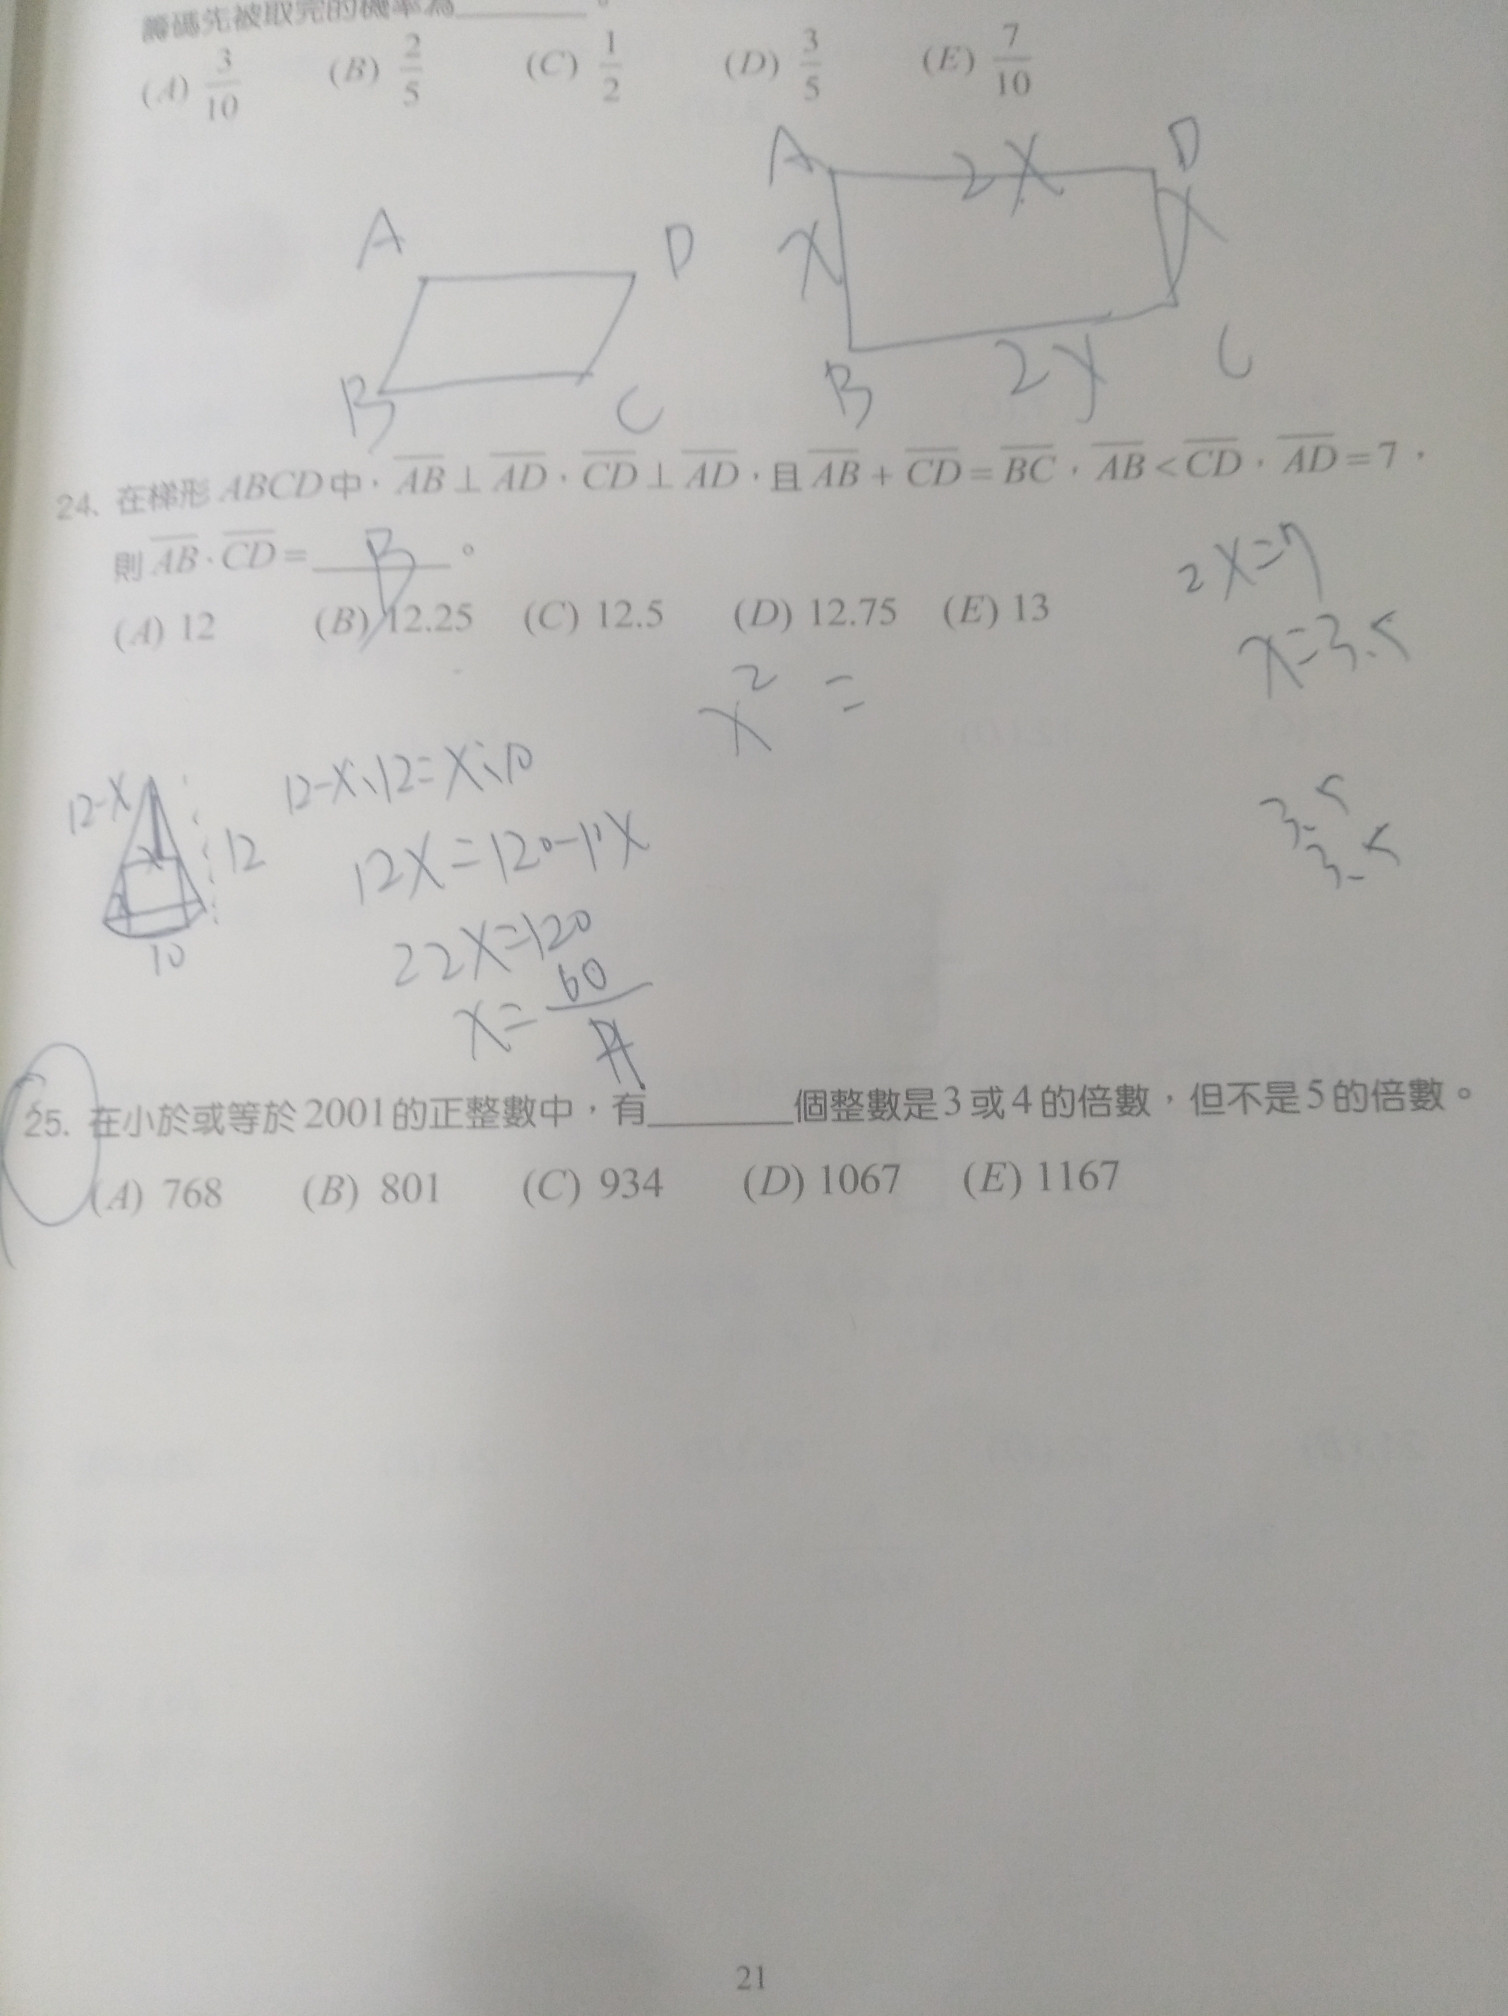 籌碼先被取完的機率為______。
(A) 3/10 (B) 2/5 (C) 1/2 (D) 3/5 (E) 7/10
A D
B C
A 2X D
X X
B C
24. 在梯形ABCD中,AB⊥AD,CD⊥AD,且AB+CD=BC,AB<CD,AD=7,
則AB·CD=___B___。
(A) 12 (B) 12.25 (C) 12.5 (D) 12.75 (E) 13
2X=7
X=3.5
X²=
3.5
3.5
12-X
12
10
12-X:12=X:10
12X=120-10X
22X=120
X=60/11
25. 在小於或等於2001的正整數中,有______個整數是3或4的倍數,但不是5的倍數。
(A) 768 (B) 801 (C) 934 (D) 1067 (E) 1167
21